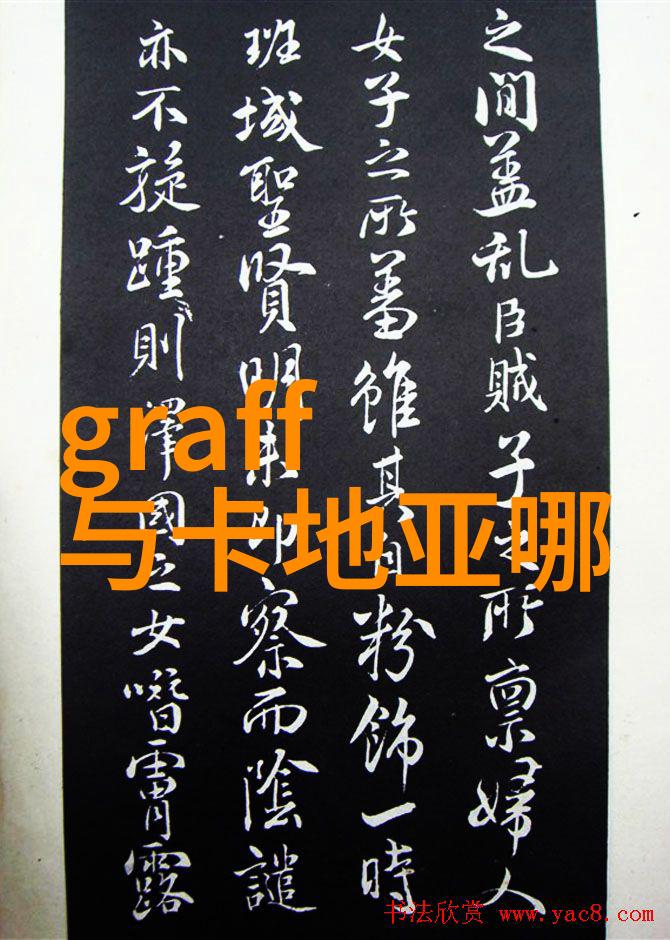 之間盖乱臣賊子之所禀婦人
女子之所蓄雖其自粉飾一時
班域聖賢明未即察而陰譴
亦不旋踵則澤國之女噆霄露
graff
与卡地亚哪
书法欣赏 www.yac8.com